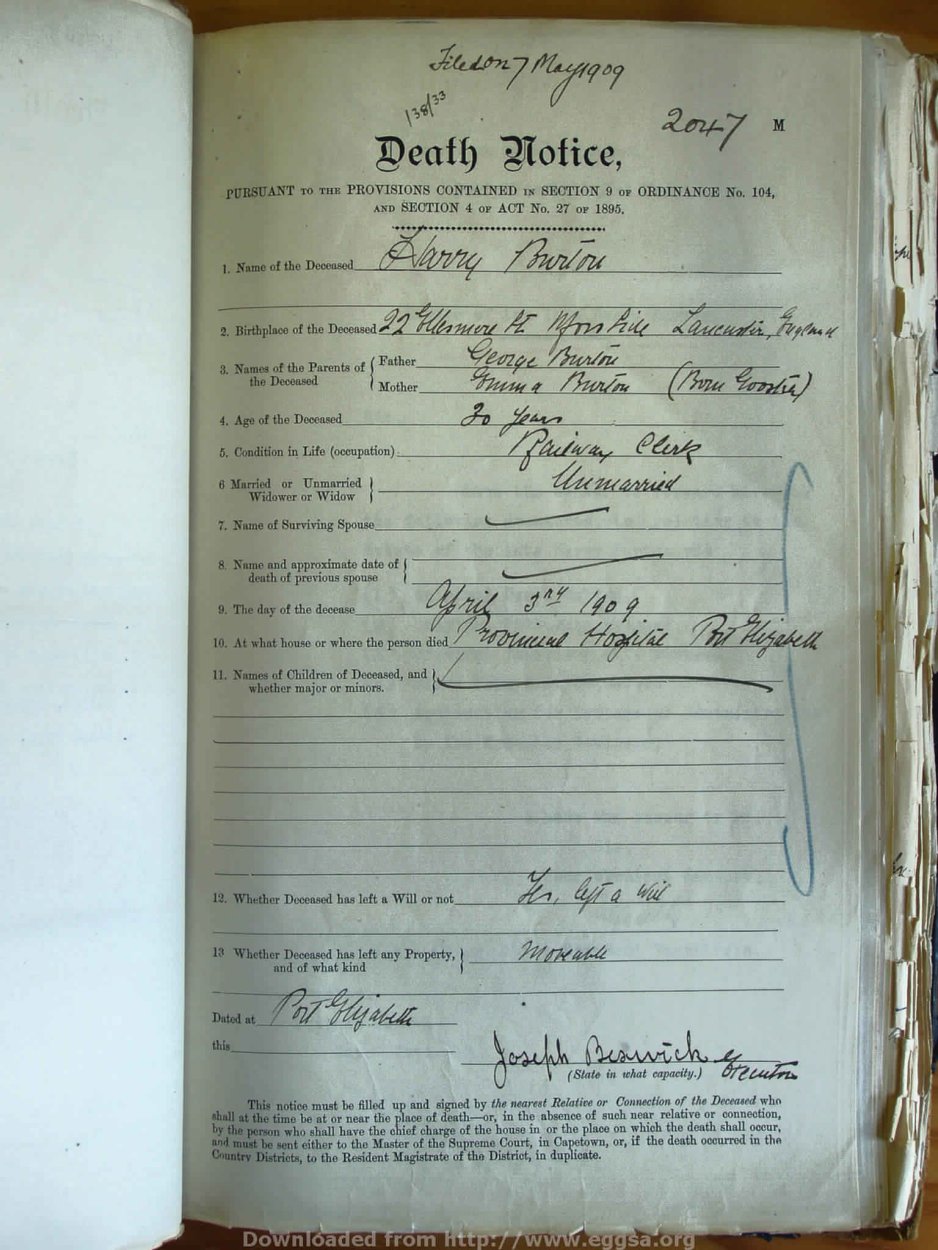 Filed on 7 May 1909
138/33
2047 M
Death Notice,
PURSUANT TO THE PROVISIONS CONTAINED IN SECTION 9 OF ORDINANCE No. 104,
AND SECTION 4 OF ACT No. 27 OF 1895.
1. Name of the Deceased Harry Burton
2. Birthplace of the Deceased 22 Ellesmere St Lancaster, England
3. Names of the Parents of the Deceased { Father George Burton
Mother Emma Burton (Born
4. Age of the Deceased 30 years
5. Condition in Life (occupation) Railway Clerk
6 Married or Unmarried Widower or Widow } Unmarried
7. Name of Surviving Spouse
8. Name and approximate date of death of previous spouse {
9. The day of the decease April 3rd 1909
10. At what house or where the person died Provincial Hospital Port Elizabeth
11. Names of Children of Deceased, and whether major or minors. }
12. Whether Deceased has left a Will or not Yes, left a Will
13 Whether Deceased has left any Property, and of what kind } Moveable
Dated at Port Elizabeth
this
Joseph Beswick Executor
(State in what capacity.)
This notice must be filled up and signed by the nearest Relative or Connection of the Deceased who
shall at the time be at or near the place of death—or, in the absence of such near relative or connection,
by the person who shall have the chief charge of the house in or the place on which the death shall occur,
and must be sent either to the Master of the Supreme Court, in Capetown, or, if the death occurred in the
Country Districts, to the Resident Magistrate of the District, in duplicate.
Downloaded from http://www.eggsa.org